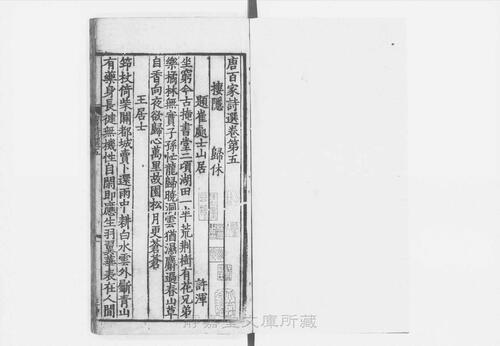 唐百家詩選卷第五
棲隱　歸休
題崔處士山居　許渾
坐窮今古掩書堂二頃湖田一半荒荆樹有花兄弟
樂橘林無實子孫忙龍歸曉洞雲猶濕麝過春山草
自香向夜欲歸心萬里故園松月更蒼蒼
王居士
筇杖倚柴關都城賣卜還雨中耕白水雲外斸青山
有藥身長健無機性自閑即應生羽翼華表在人間
靜嘉堂文庫所藏